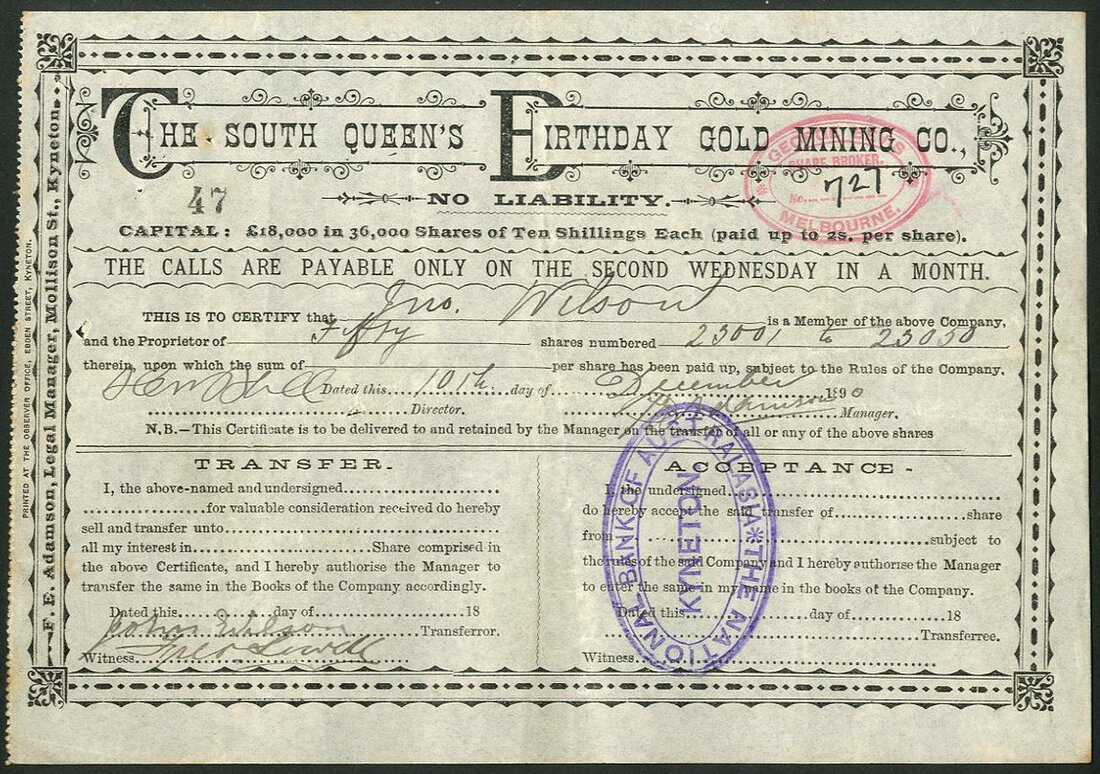 THE SOUTH QUEEN'S BIRTHDAY GOLD MINING CO.,
SHARE BROKER.
No. 727
MELBOURNE.
47
NO LIABILITY.
CAPITAL: £18,000 in 36,000 Shares of Ten Shillings Each (paid up to 2s. per share).
THE CALLS ARE PAYABLE ONLY ON THE SECOND WEDNESDAY IN A MONTH.
THIS IS TO CERTIFY that Jno. Wilson is a Member of the above Company,
and the Proprietor of Fifty shares numbered 23001 to 23050
therein, upon which the sum of per share has been paid up, subject to the Rules of the Company.
Dated this 10th day of December 1890
Director. Manager.
N.B.—This Certificate is to be delivered to and retained by the Manager on the transfer of all or any of the above shares
TRANSFER.
I, the above-named and undersigned
for valuable consideration received do hereby
sell and transfer unto
all my interest in Share comprised in
the above Certificate, and I hereby authorise the Manager to
transfer the same in the Books of the Company accordingly.
Dated this day of 18
John Wilson Transferror.
Witness
ACCEPTANCE -
I, the undersigned
do hereby accept the said transfer of share
from subject to
the rules of the said Company and I hereby authorise the Manager
to enter the same in my name in the books of the Company.
Dated this day of 18
Transferee.
Witness
THE NATIONAL BANK OF AUSTRALASIA
KYNETON
F. E. Adamson, Legal Manager, Mollison St., Kyneton.
PRINTED AT THE OBSERVER OFFICE, EBDEN STREET, KYNETON.